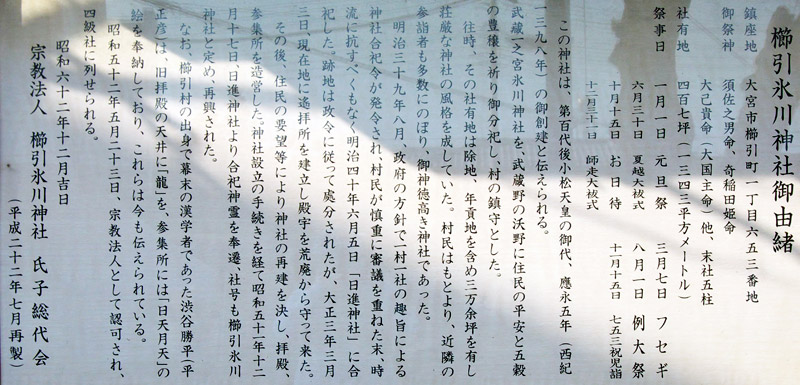 櫛引氷川神社御由緒
鎮座地　大宮市櫛引町一丁目六五三番地
御祭神　須佐之男命、奇稲田姫命
大己貴命（大国主命）他、末社五柱
社有地　四百七坪（一三四三平方メートル）
祭事日　一月一日　元旦祭　三月七日　フセギ
六月三十日　夏越大祓式　八月一日　例大祭
十月十五日　お日待　十一月十五日　七五三祝児詣
十二月三十一日　師走大祓式
この神社は、第百代後小松天皇の御代、應永五年（西紀
一三九八年）の御創建と伝えられる。
武蔵一之宮氷川神社を、武蔵野の沃野に住民の平安と五穀
の豊穣を祈り御分祀し、村の鎮守とした。
往時、その社有地は除地、年貢地を含め三万余坪を有し
荘厳な神社の風格を成していた。村民はもとより、近隣の
参詣者も多数にのぼり、御神徳高き神社であった。
明治三十九年八月、政府の方針で一村一社の趣旨による
神社合祀令が発令され、村民が慎重に審議を重ねた末、時
流に抗すべくもなく明治四十年六月五日「日進神社」に合
祀した。跡地は政令に従って処分されたが、大正三年三月
三日、現在地に遙拝所を建立し殿宇を荒廃から守って来た。
その後、住民の要望等により神社の再建を決し、拝殿、
参集所を造営した。神社設立の手続きを経て昭和五十一年十二
月十七日、日進神社より合祀神霊を奉遷、社号も櫛引氷川
神社と定め、再興された。
なお、櫛引村の出身で幕末の漢学者であった渋谷勝平（平
正彦）は、旧拝殿の天井に「龍」を、参集所には「日天月天」の
絵を奉納しており、これらは今も伝えられている。
昭和五十二年五月二十三日、宗教法人として認可され、
四級社に列せられる。
昭和六十二年十二月吉日
宗教法人　櫛引氷川神社　氏子総代会
（平成二十二年七月再製）